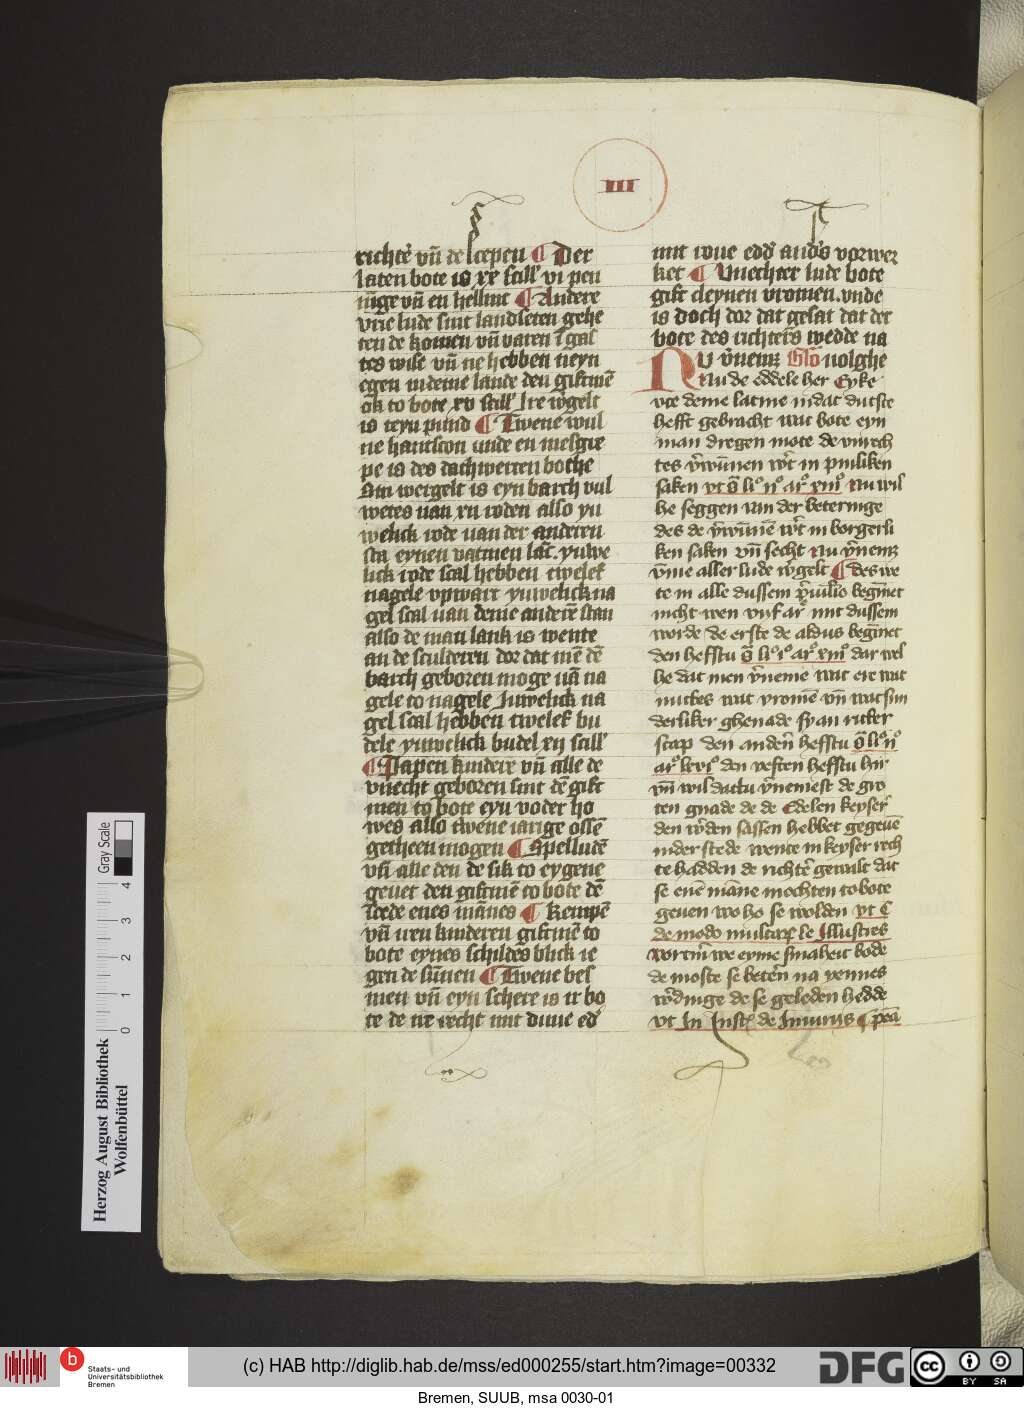 III
richtē vn̄ de scepen ¶ Der
laten bote is xx scill' vi pen
nīge vn̄ en hellint ¶ Andere
vrīe lude sint landseten gehe
ten de komen vn̄ varen ī gas
tes wise vn̄ ne hebben neyn
egen in deme lande den giftmē
ok to bote xv scill' Ire w̄gelt
is teyn pund ¶ Twene wul
ne hantscon unde en mesgre
pe is des dachwerten bothe
Sin wergelt is eyn barch vul
wetes uan xii roden also yu
welick rode uan der anderen
sta eynen vatmen lāc. yuwe
lick rode scal hebben twelef
nagele vpwart yuwelick na
gel scal uan deme anderē stan
also de man lank is wente
an de sculderen dor dat mē dē
barch geboren moge uā na
gele to nagele Juwelick na
gel scal hebben twelef bu
dele yuwelick budel xij scill'
¶ Papen kinderē vn̄ alle de
vnecht geboren sint dē gift
men to bote eyn voder ho
wes also twene iarige ossē
getheen mogen ¶ Spelludē
vn̄ alle den de sik to eygene
geuet den giftmē to bote dē
scede enes mānes ¶ Kempē
vn̄ uren kinderen giftmē to
bote eynes schildes blick ie
gen de sūnen ¶ Twene bes
men vn̄ eyn schere is ir bo
te de ne recht mit duue ed'
mit roue edd' and's vorwer
ket ¶ Vnechter lude bote
gift cleynen vromen. vnde
is doch dor dat gesat dat der
bote des richters wedde na
NU v̄nemz Glo' uolghe
Nu de eddele her Eyke
vte deme latine in dat dutsce
hefft gebracht wat bote eyn
man dregen mote de vnrech
tes v̄wūnen w̄t in pinliken
saken vt ō li° ii° ar° xiii° Nu wil
he seggen van der beteringe
des de v̄wūnē w̄t in borgerli
ken saken vn̄ secht Nu v̄nemz
v̄me aller lude w̄gelt ¶ des we
te in alle dussem
nicht wen vijf ar° mit dussem
worde de erste de aldus begīnet
den hefftu ō li° i° ar° xiii° dar wel
he dat men v̄neme wat ere wat
nuttes wat vromē vn̄ wat sun
derliker ghenade sy an ritter
scap den andern̄ hefftu ō li° ii°
ar° den vesten hefftu hir
vn̄ wil dattu v̄nemest de gro
ten gnade de de Edelen keyser
den w̄den sassen hebbet gegeuē
in der stede wente in keyser rech
te hadden de richtē gewalt dat
se enē māne mochten to bote
geuen wo ho se wolden vt C
de modo mulctarz le Illustres
vort m̄ we eyme smaheit bode
de moste se beterń na pennes
w̄dinge de se geleden hedde
vt In Inst' de Iniuriis ¶ pēa
Herzog August Bibliothek
Wolfenbüttel
0 1 2 3 4
Gray Scale
b
Staats- und
Universitätsbibliothek
Bremen
(c) HAB http://diglib.hab.de/mss/ed000255/start.htm?image=00332
DFG
cc BY SA
Bremen, SUUB, msa 0030-01